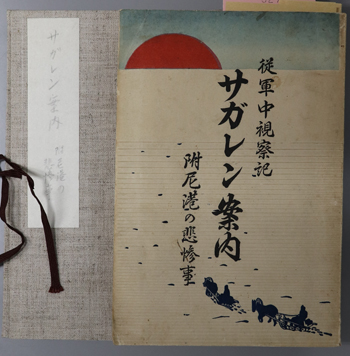 従軍中視察記
サガレン案内
附尼港の悲惨事
サガレン案内